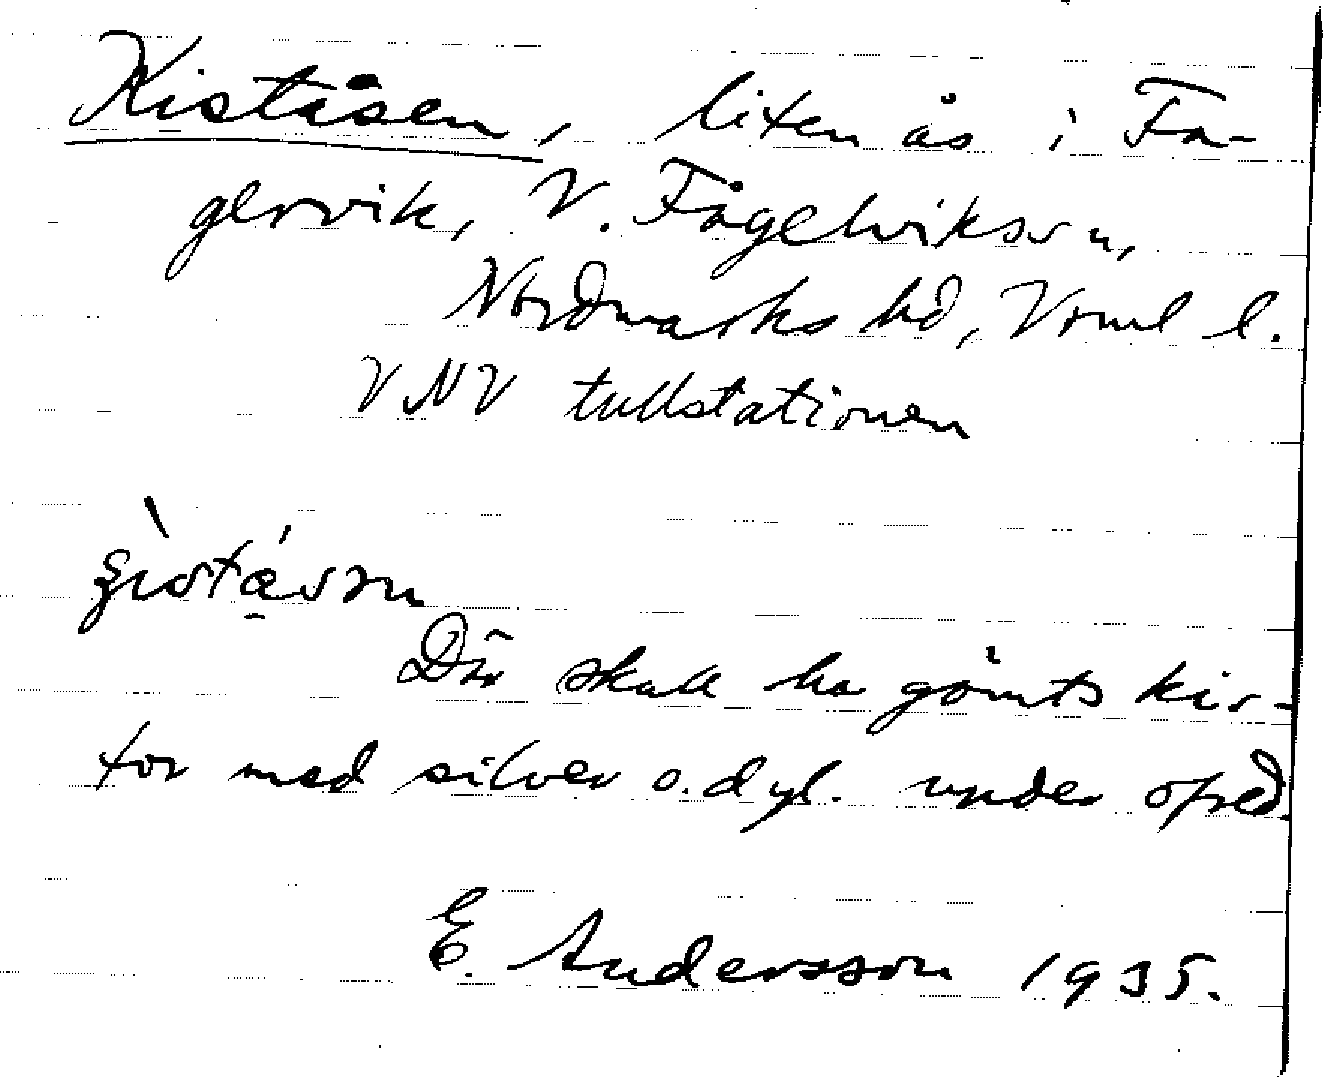 Kiståsen, liten ås i Fa-
gervik, V. Fågelviks sn,
Nordmarks hd, Vrml l.
VNV tullstationen
Där skall ha gömts kis-
tor med silver o. dyl. under ofred.
E. Andersson 1935.